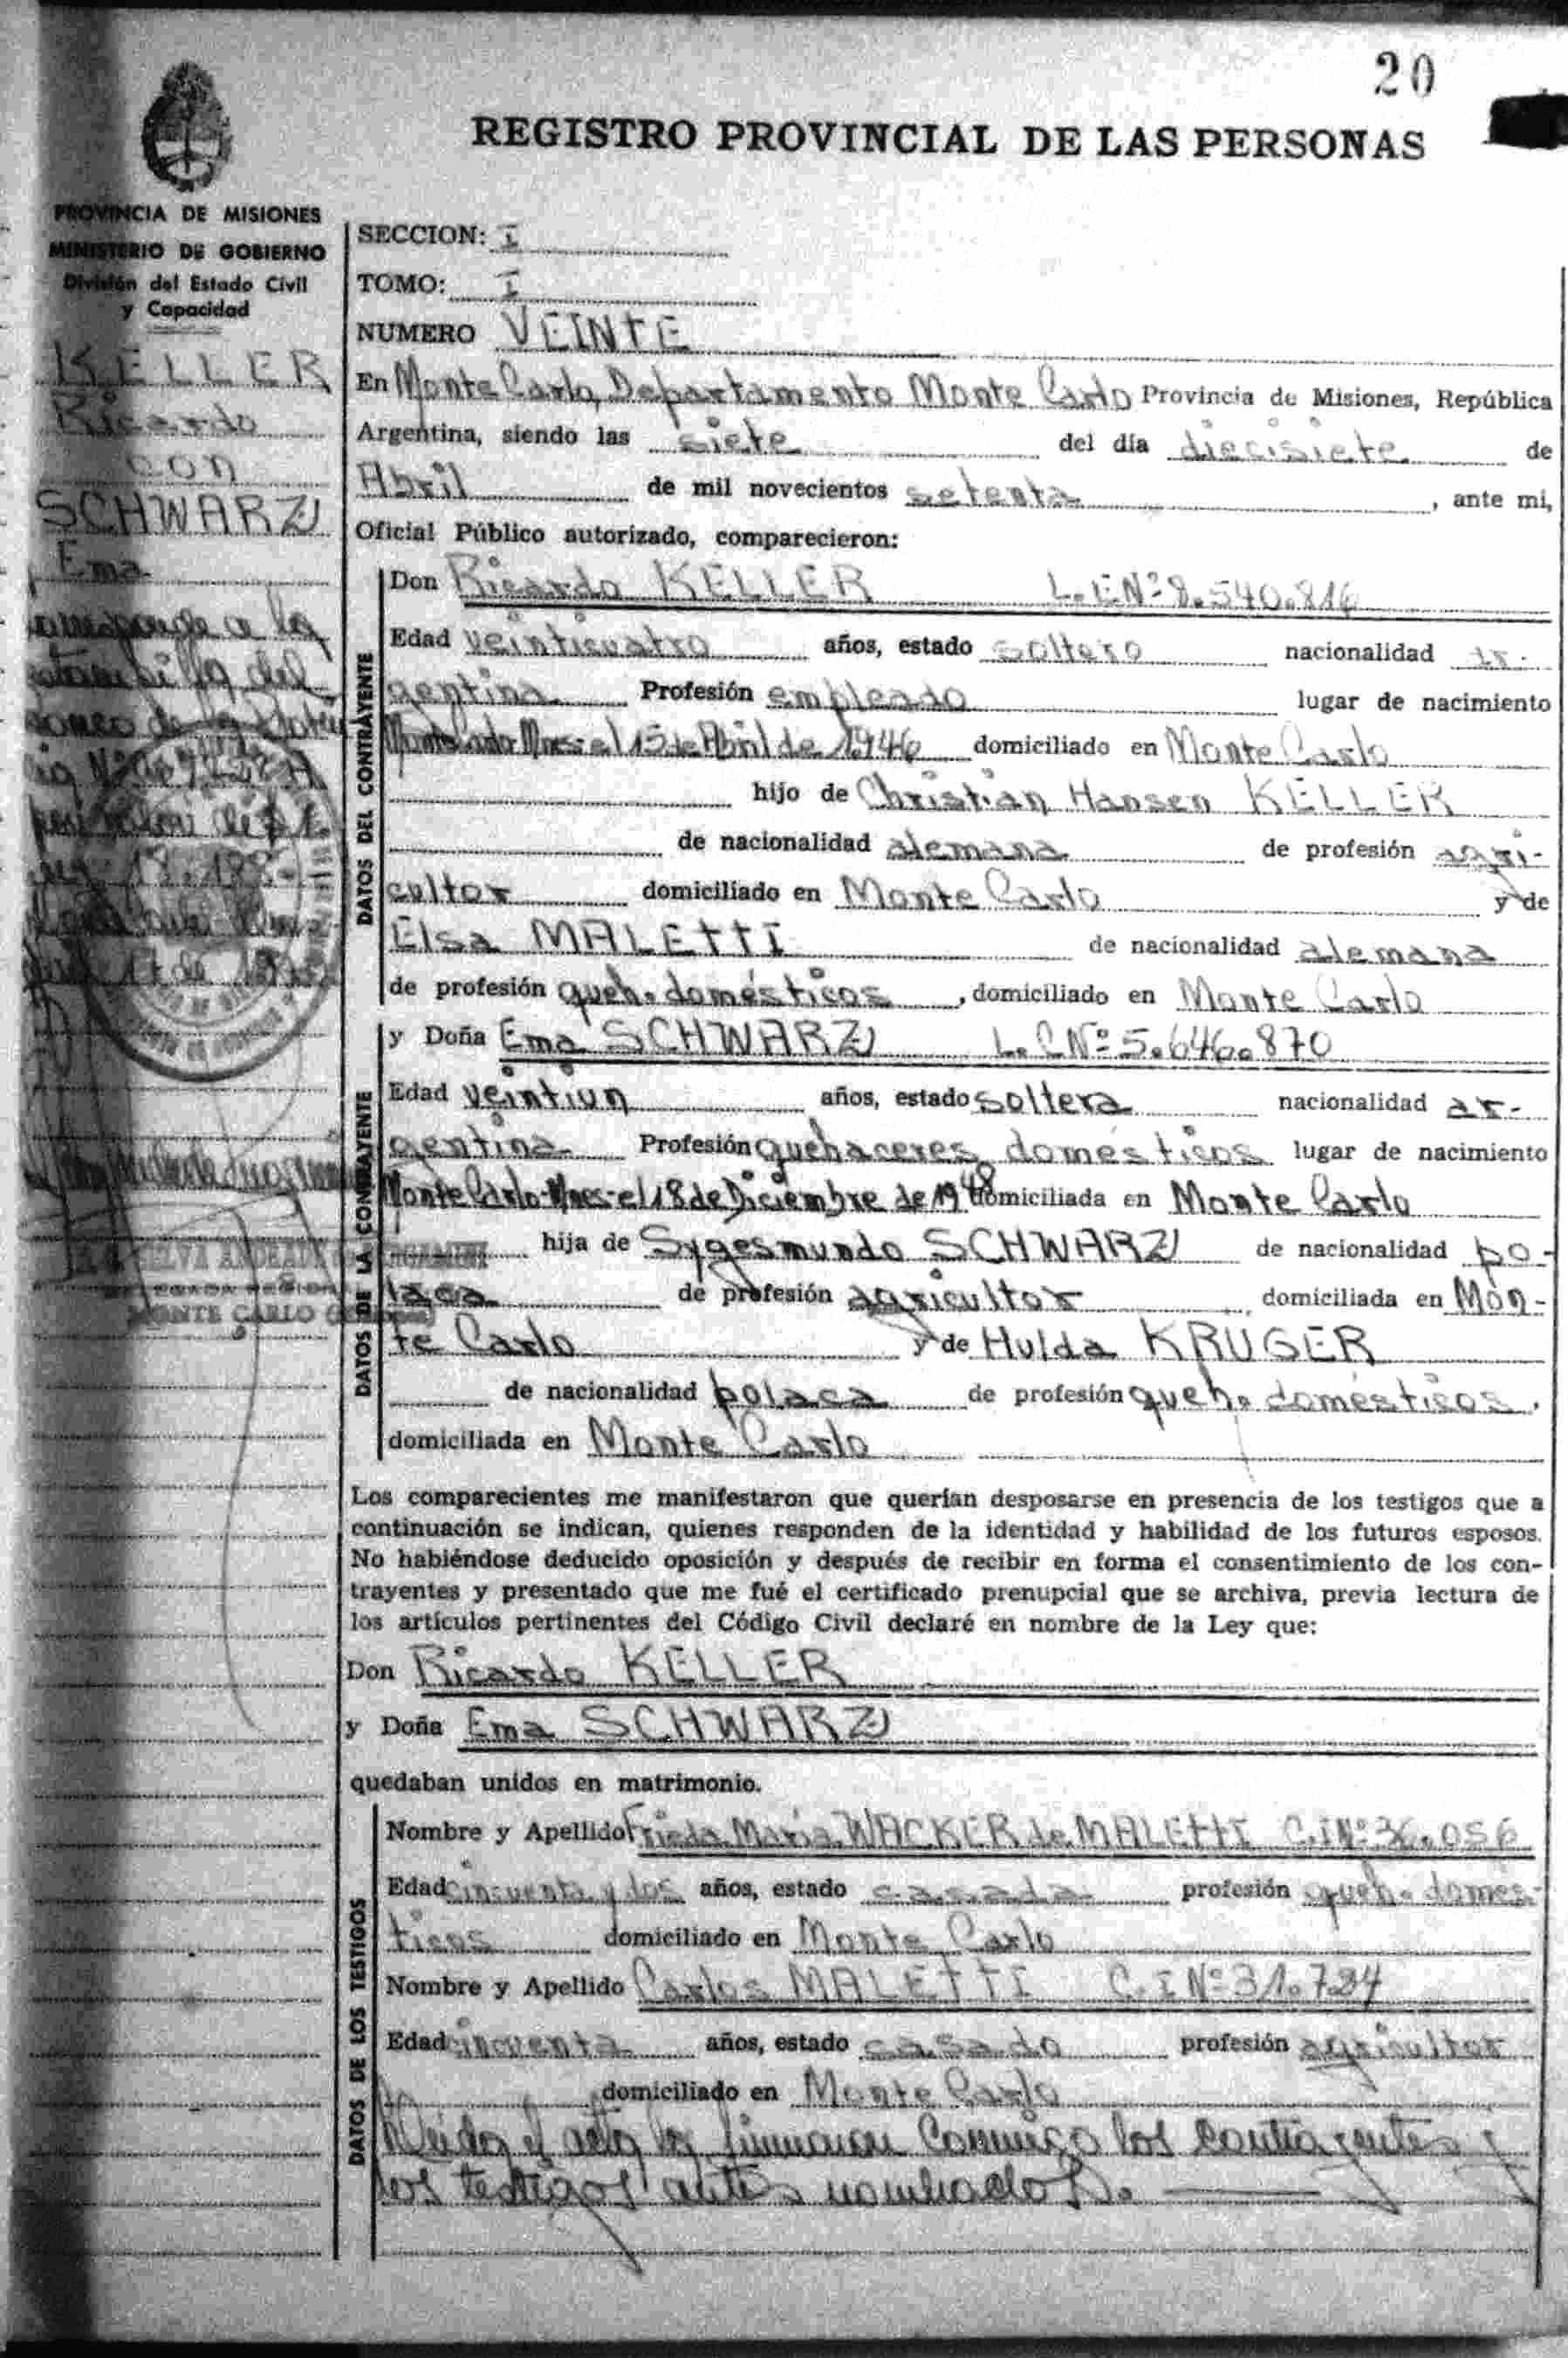 20
REGISTRO PROVINCIAL DE LAS PERSONAS
PROVINCIA DE MISIONES
MINISTERIO DE GOBIERNO
División del Estado Civil
y Capacidad
KELLER
Ricardo
con
SCHWARZ
Ema
SECCION: I
TOMO: I
NUMERO VEINTE
En Monte Carlo, Departamento Monte Carlo Provincia de Misiones, República
Argentina, siendo las siete del día diecisiete de
Abril de mil novecientos setenta, ante mi,
Oficial Público autorizado, comparecieron:
DATOS DEL CONTRAYENTE
Don Ricardo KELLER L.E.Nº 8.540.816
Edad veinticuatro años, estado soltero nacionalidad ar-
gentina Profesión empleado lugar de nacimiento
Monte Carlo Mnes- el 15 de Abril de 1946 domiciliado en Monte Carlo
hijo de Christian Hansen KELLER
de nacionalidad alemana de profesión agri-
cultor domiciliado en Monte Carlo y de
Elsa MALETTI de nacionalidad alemana
de profesión queh. domésticos, domiciliado en Monte Carlo
DATOS DE LA CONTRAYENTE
y Doña Ema SCHWARZ L.C Nº 5.646.870
Edad veintiun años, estado soltera nacionalidad ar-
gentina Profesión quehaceres domésticos lugar de nacimiento
Monte Carlo-Mnes-el 18 de Diciembre de 1948 domiciliada en Monte Carlo
hija de Sygesmundo SCHWARZ de nacionalidad po-
laca de profesión agricultor domiciliada en Mon-
te Carlo y de Hulda KRUGER
de nacionalidad polaca de profesión queh. domésticos,
domiciliada en Monte Carlo
MONTE CARLO
Los comparecientes me manifestaron que querían desposarse en presencia de los testigos que a
continuación se indican, quienes responden de la identidad y habilidad de los futuros esposos.
No habiéndose deducido oposición y después de recibir en forma el consentimiento de los con-
trayentes y presentado que me fué el certificado prenupcial que se archiva, previa lectura de
los artículos pertinentes del Código Civil declaré en nombre de la Ley que:
Don Ricardo KELLER
y Doña Ema SCHWARZ
quedaban unidos en matrimonio.
DATOS DE LOS TESTIGOS
Nombre y Apellido Frieda Maria WACKER de MALETTI C.I Nº 36.056
Edad cincuenta y dos años, estado casada profesión queh. domés-
ticos domiciliado en Monte Carlo
Nombre y Apellido Carlos MALETTI C.I Nº 31.724
Edad cincuenta años, estado casado profesión agricultor
domiciliado en Monte Carlo
Leída el acta la firmaron Conmigo los contrayentes y
los testigos antes nombrados.